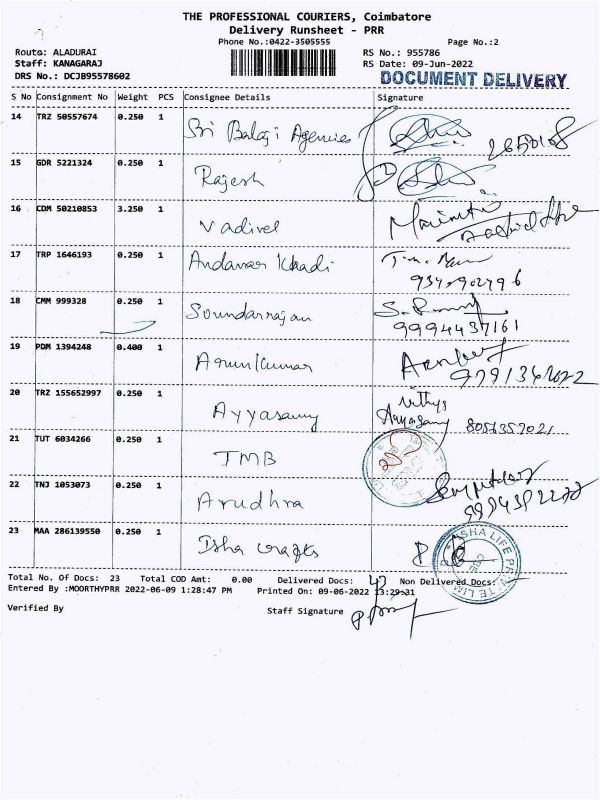 THE PROFESSIONAL COURIERS, Coimbatore
Delivery Runsheet - PRR
Phone No.:0422-3505555
Page No.:2
Route: ALADURAI
RS No.: 955786
Staff: KANAGARAJ
RS Date: 09-Jun-2022
DRS No.: DCJB95578602
DOCUMENT DELIVERY
S No Consignment No Weight PCS Consignee Details Signature
14 TRZ 50557674 0.250 1 Sri Balaji Agencies
15 GDR 5221324 0.250 1 Rajesh
16 CDM 50210853 3.250 1 Vadivel
17 TRP 1646193 0.250 1 Andavar Khadi
18 CMM 999328 0.250 1 Soundarrajan
9994437161
19 PDM 1394248 0.400 1 Arunkumar
20 TRZ 155652997 0.250 1 Ayyasamy Vithya
Ayyasamy
21 TUT 6034266 0.250 1 TMB
22 TNJ 1053073 0.250 1 Arudhra
23 MAA 286139550 0.250 1 Isha crafts
ISHA LIFE PRIVATE LIMITED
Total No. Of Docs: 23 Total COD Amt: 0.00 Delivered Docs: Non Delivered Docs:
Entered By :MOORTHYPRR 2022-06-09 1:28:47 PM Printed On: 09-06-2022 13:29:31
Verified By Staff Signature